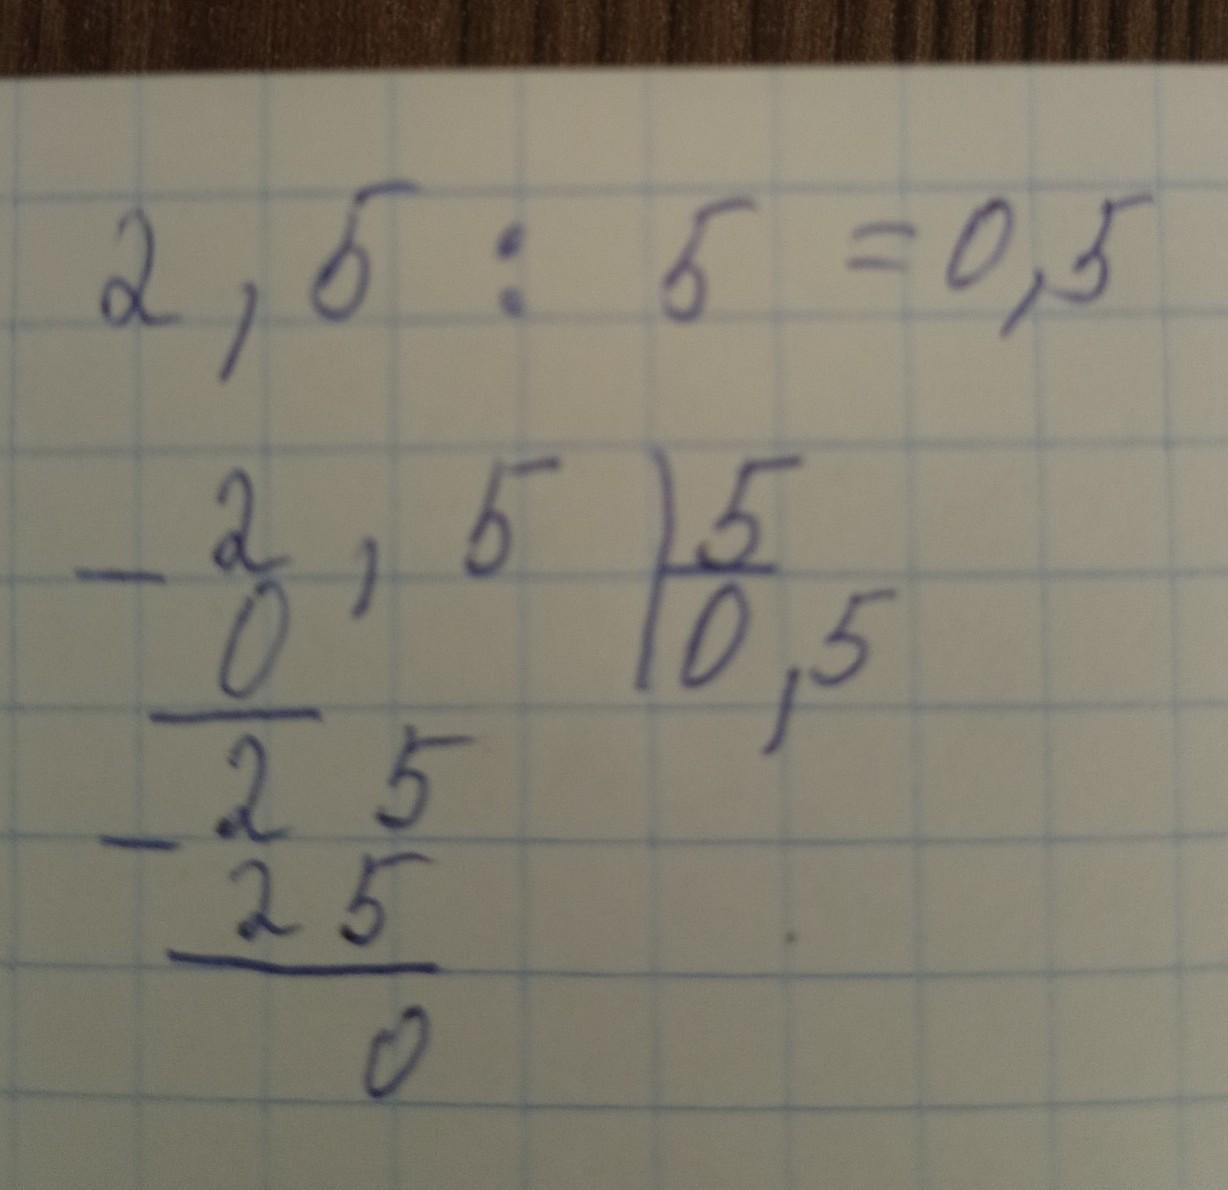 2,5 : 5 = 0,5
- 2,5 | 5
0 | 0,5
- 25
25
0